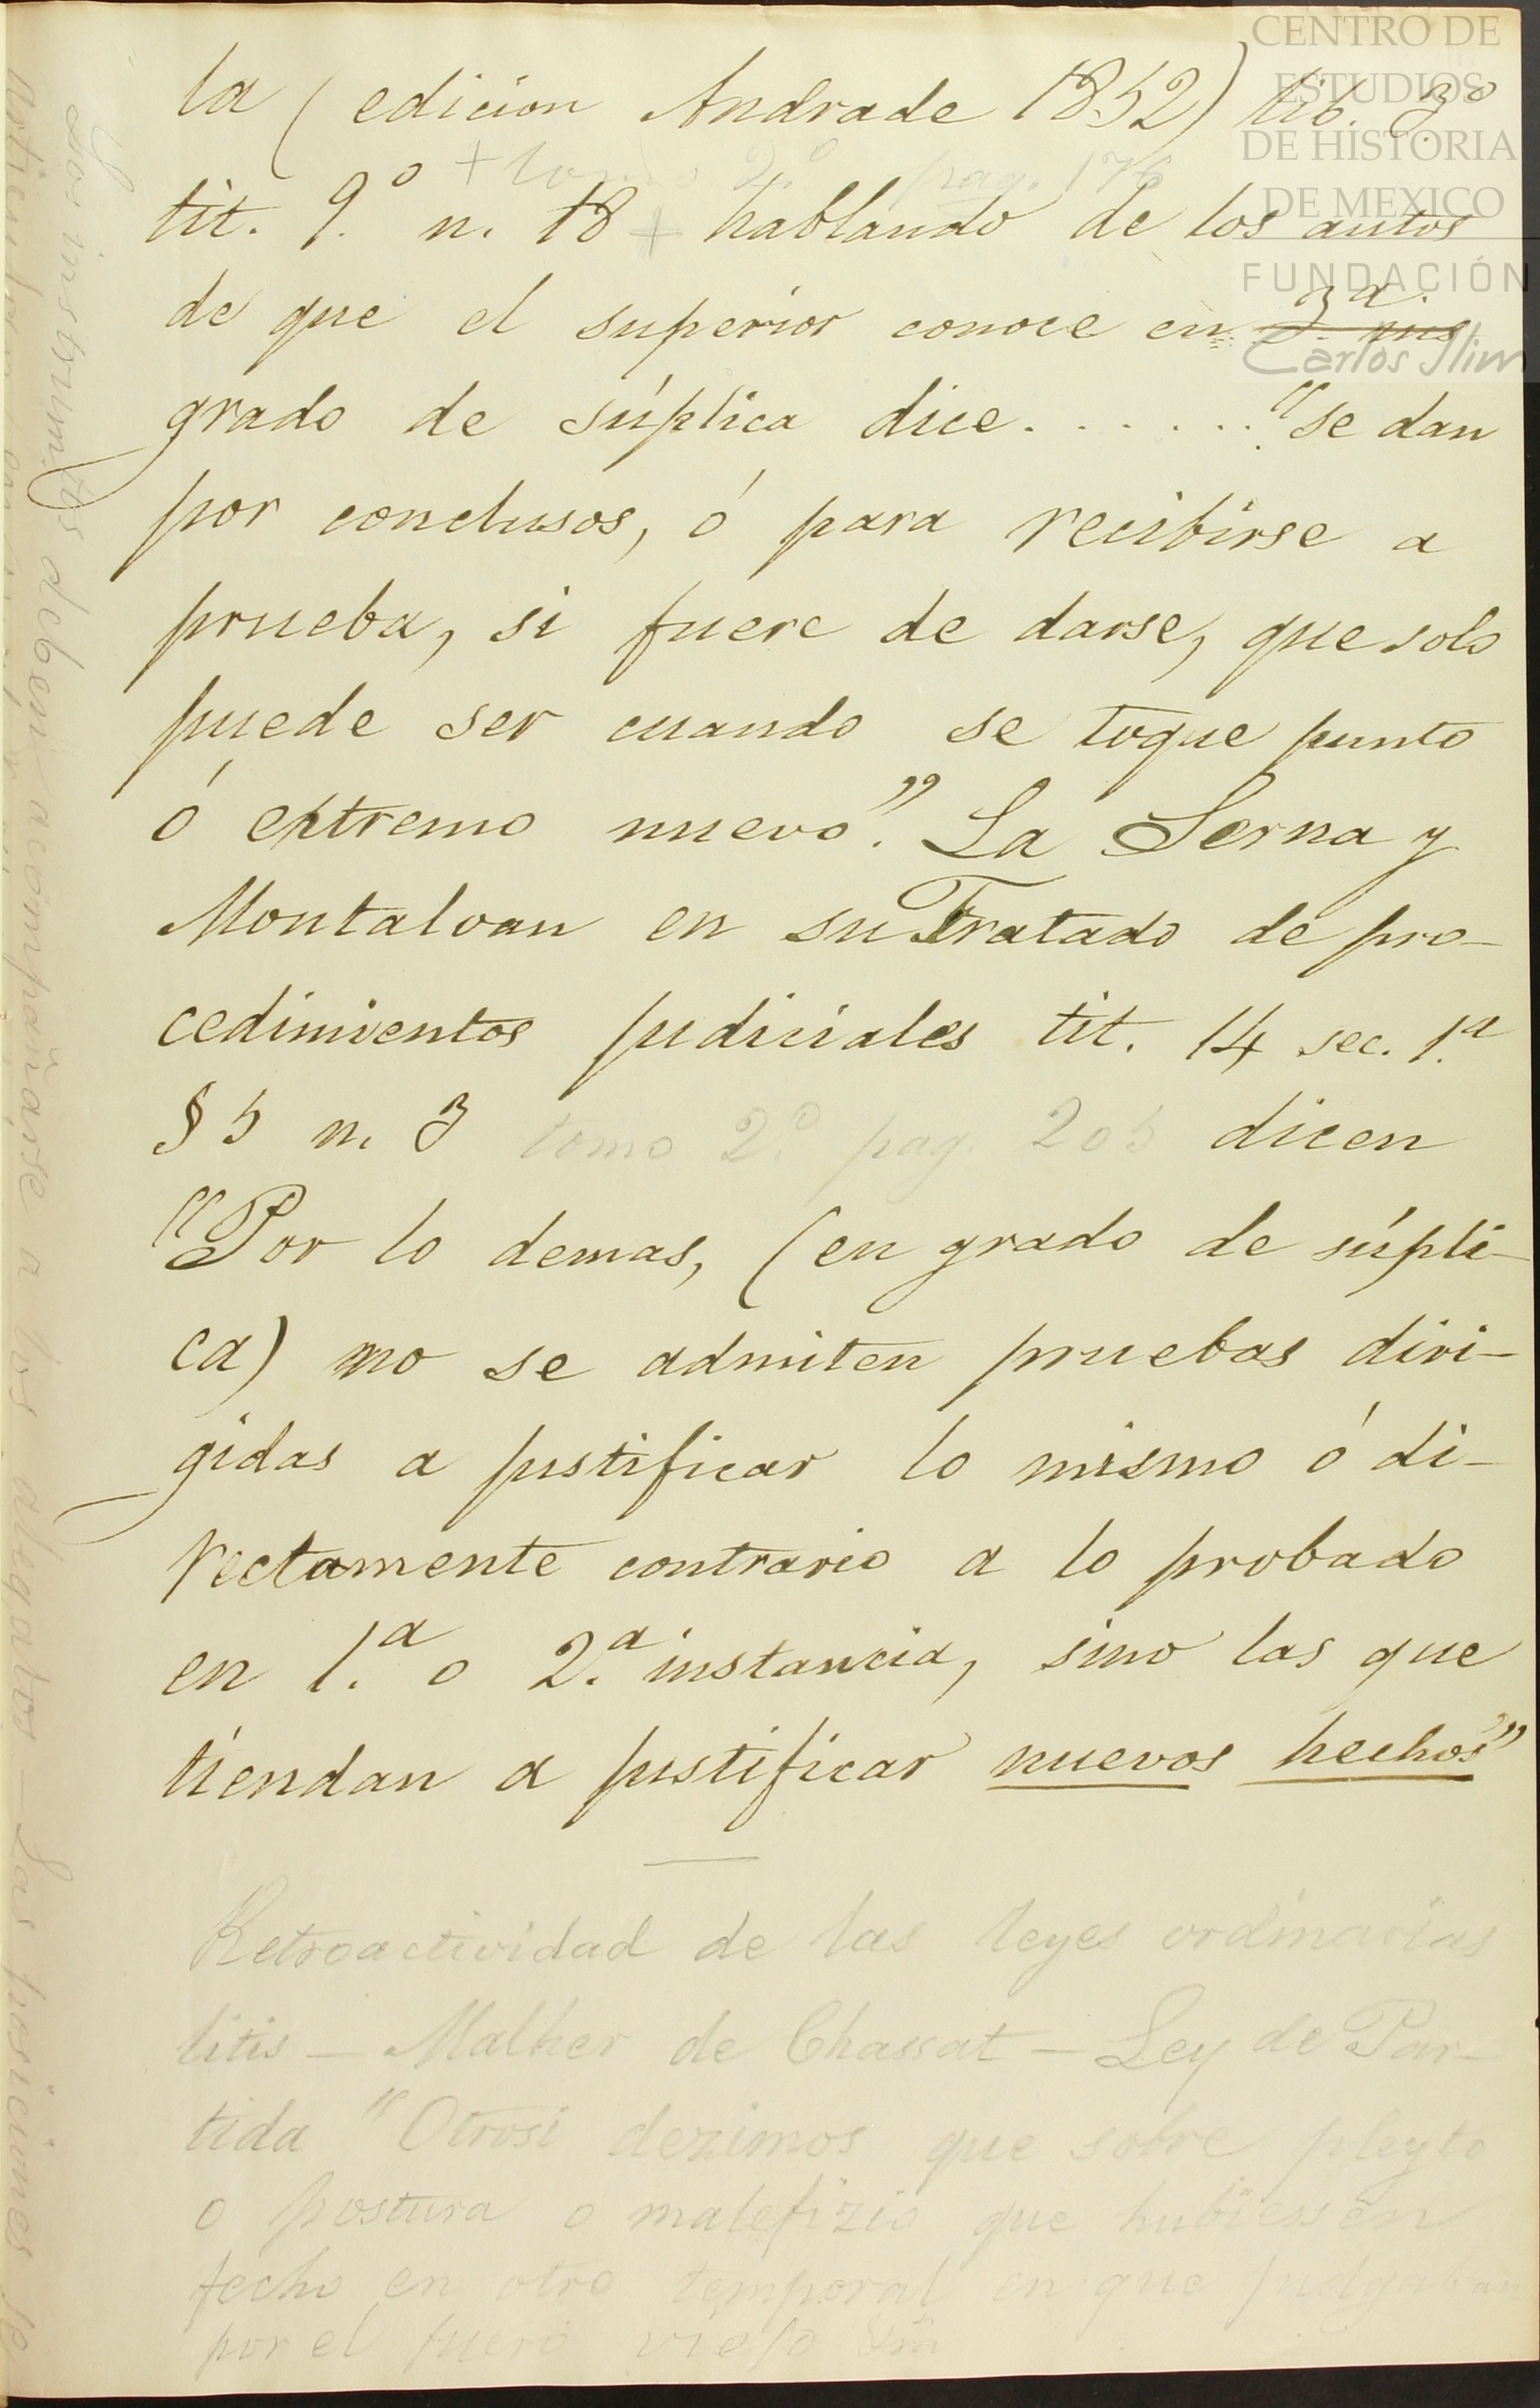 CENTRO DE
ESTUDIOS
DE HISTORIA
DE MEXICO
FUNDACIÓN
Carlos Slim
la (edicion Andrade 1852) lib. 3º
+ tomo 2.º pag. 176
tit. 9.º n. 18 + hablando de los autos
de que el superior conoce en 3ª.
grado de súplica dice. . . . . . . "se dan
por conclusos, ó para recibirse a
prueba, si fuere de darse, que solo
puede ser cuando se toque punto
ó extremo nuevo". La Serna y
Montalvan en su Tratado de pro-
cedimientos judiciales tit. 14 sec. 1.ª
§ 5 n. 3 tomo 2.º pag. 205 dicen
"Por lo demas, (en grado de súpli-
ca) no se admiten pruebas diri-
gidas a justificar lo mismo ó di-
rectamente contrario a lo probado
en 1.ª o 2.ª instancia, sino las que
tiendan a justificar nuevos hechos"
Retroactividad de las leyes ordinarias
litis — Malher de Chassat — Ley de Par-
tida "Otrosi dezimos que sobre pleyto
o postura o malefizio que hubiessen
fecho en otro temporal en que judgaban
por el fuero viejo
Los instrumtos deben acompañarse a los alegatos — Las posiciones se